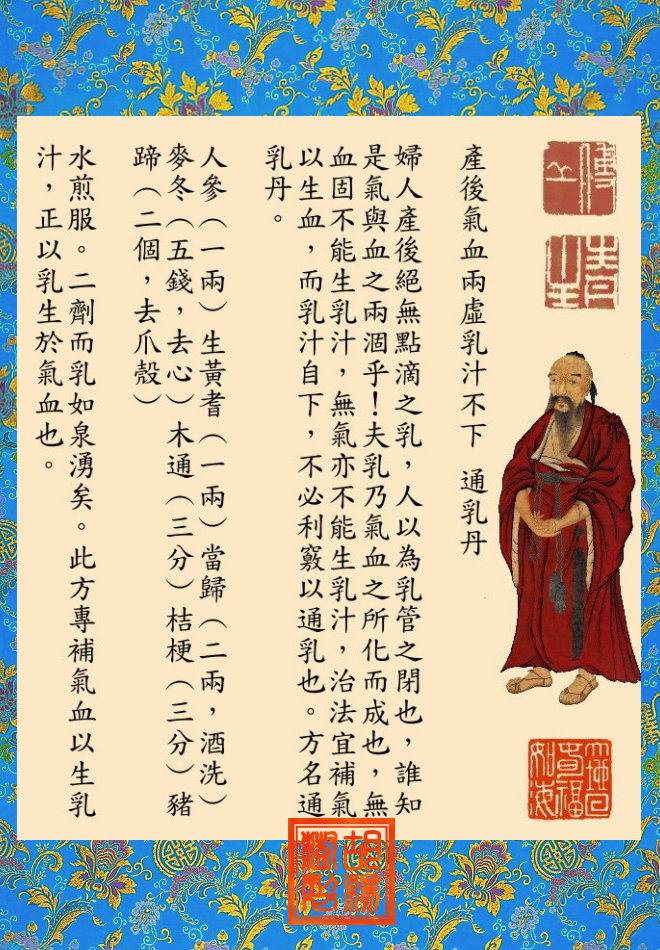 產後氣血兩虛乳汁不下 通乳丹
婦人產後絕無點滴之乳，人以為乳管之閉也，誰知
是氣與血之兩涸乎！夫乳乃氣血之所化而成也，無
血固不能生乳汁，無氣亦不能生乳汁，治法宜補氣
以生血，而乳汁自下，不必利竅以通乳也。方名通
乳丹。
人參（一兩）生黃耆（一兩）當歸（二兩，酒洗）
麥冬（五錢，去心）木通（三分）桔梗（三分）豬
蹄（二個，去爪殼）
水煎服。二劑而乳如泉湧矣。此方專補氣血以生乳
汁，正以乳生於氣血也。